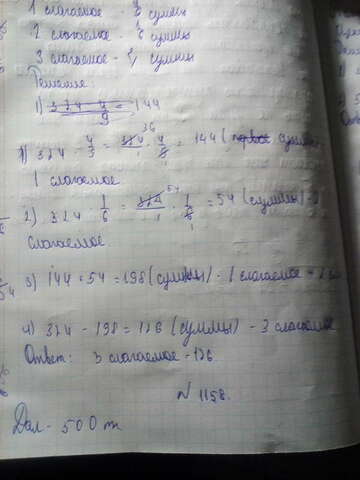 1 слагаемое - суммы
2 слагаемое - 1/6 суммы
3 слагаемое - ? суммы
Решение:
1) 324 · 4/9 = 144
1) 324 · 4/9 = 324 36/1 · 4/9 1 = 144 (суммы
1 слагаемое.
2) 324 1/6 = 324 54/1 · 1/6 1 = 54 (суммы) - 2
слагаемое.
3) 144 + 54 = 198 (суммы) - 1 слагаемое + 2
4) 324 - 198 = 126 (суммы) - 3 слагаемое
Ответ: 3 слагаемое - 126
№ 1158.
Дал - 500 т